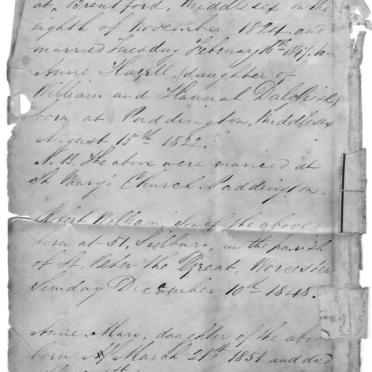 at, Brentford, Middlesex on the
eighth of November 1824. and
married Tuesday February 16th 1847, to
Anne Hazell, daughter of
William and Hannah
born at Paddington, Middlesex
August 15th 1822.
N.B. The above were married at
St Mary's Church. Paddington.
Robert William, Son of the above
born at St. in the parish
of St. Peter the Great, Worcester
Sunday December 10th 1848.
Anne Mary, daughter of the above
born March 21st 1851 and died